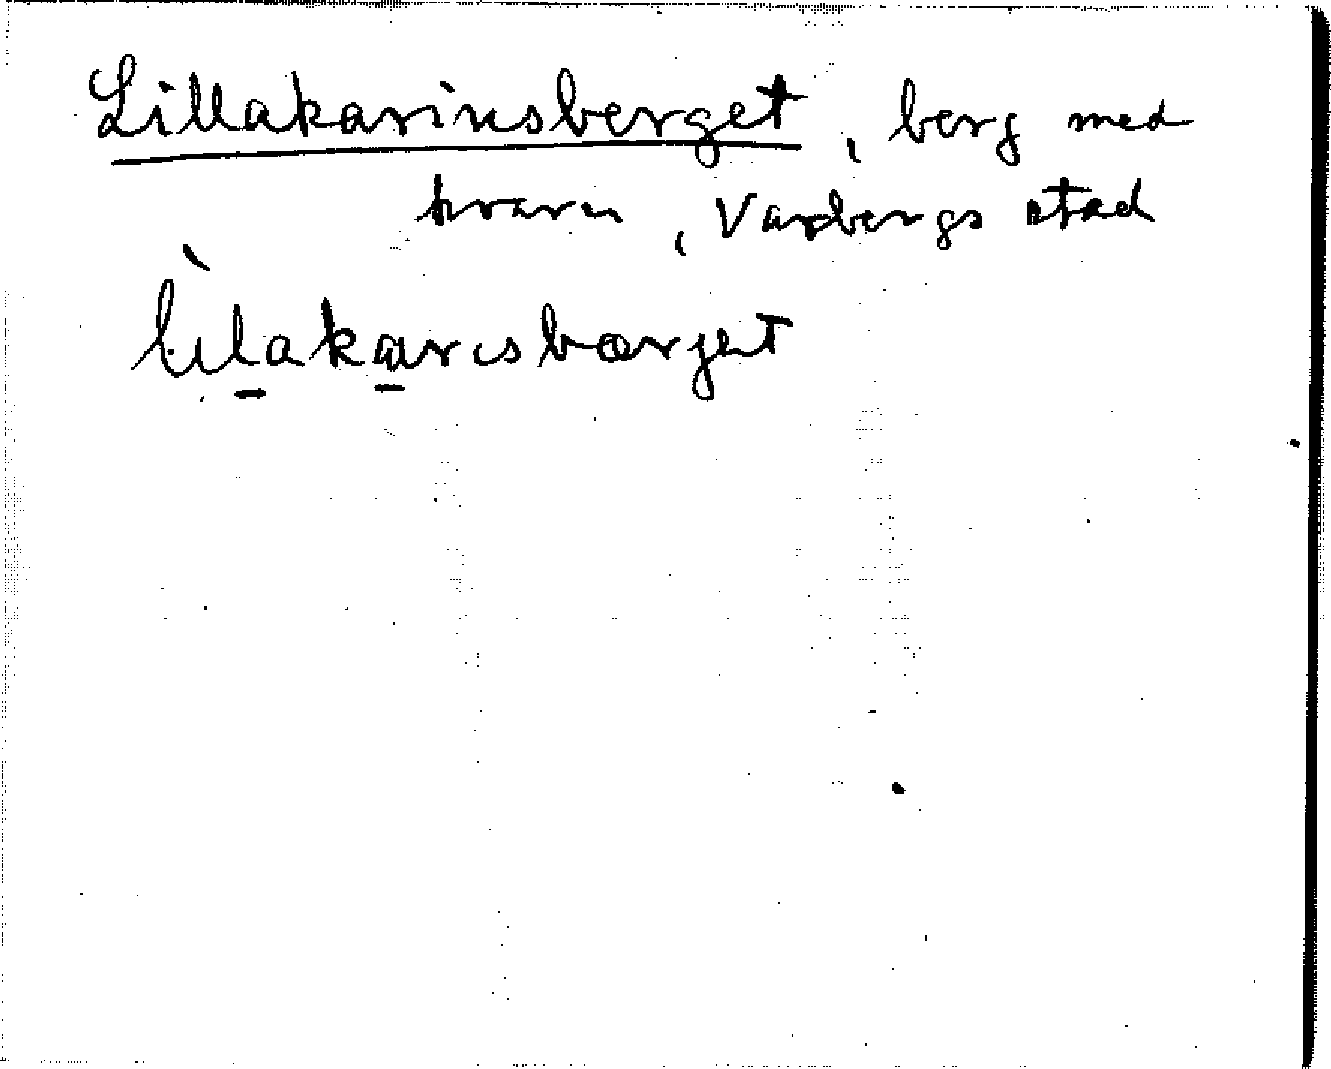 Lillakarinsberget, berg med
kvarn, Varbergs stad
lìlakarisbærget